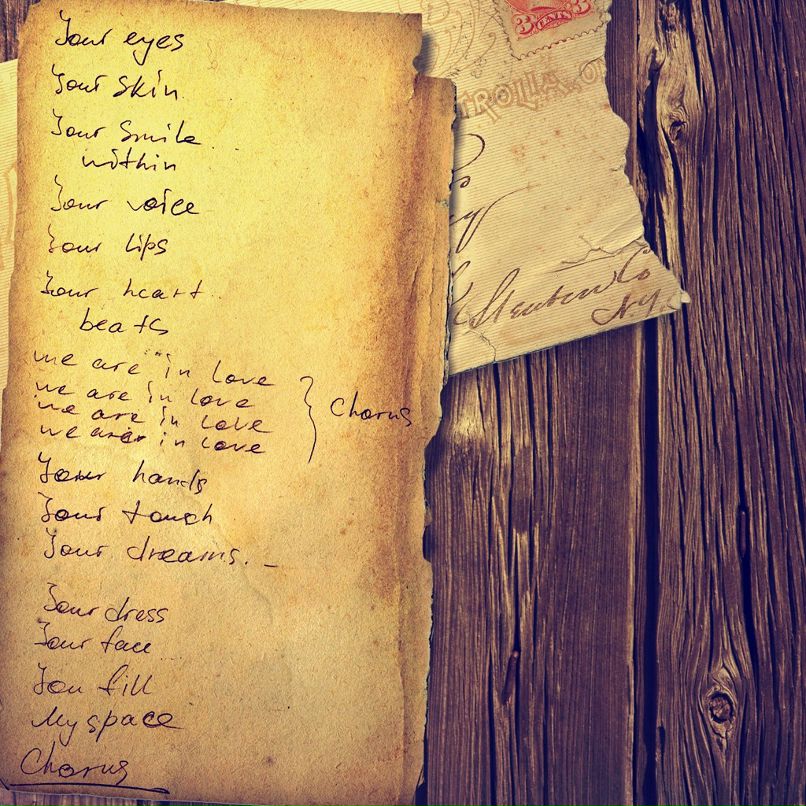 Your eyes
Your skin
Your smile
within
Your voice
Your lips
Your heart
beats
we are in love
we are in love
we are in love
we are in love
} Chorus
Your hands
Your touch
Your dreams..
Your dress
Your face
You fill
My space
Chorus
3 CENTS 3
TROLIA
Steuben Co
N.Y.